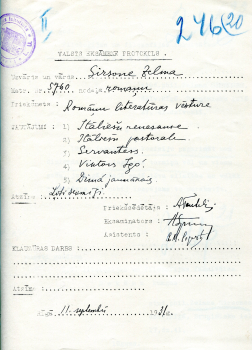 II
246(20
VALSTS EKSĀMENU PROTOKOLS.
Uzvārds un vārds: Sirsone Zelma
Matr. nr. 5760 nodaļa romāņu
Priekšmets: Romāņu literatūras vēsture
JAUTĀJUMI: 1) Itāliešu renesanse.
2) Itāliešu pastorale.
3) Servantess.
4) Viktors Igo.
5) Dimā jaunākais
Atzīme: Ļoti sekmīgi
Priekšsēdētājs:
Eksaminators:
Asistents:
KLAUZŪRAS DARBS:
Atzīme:
11. septembrī 1931.